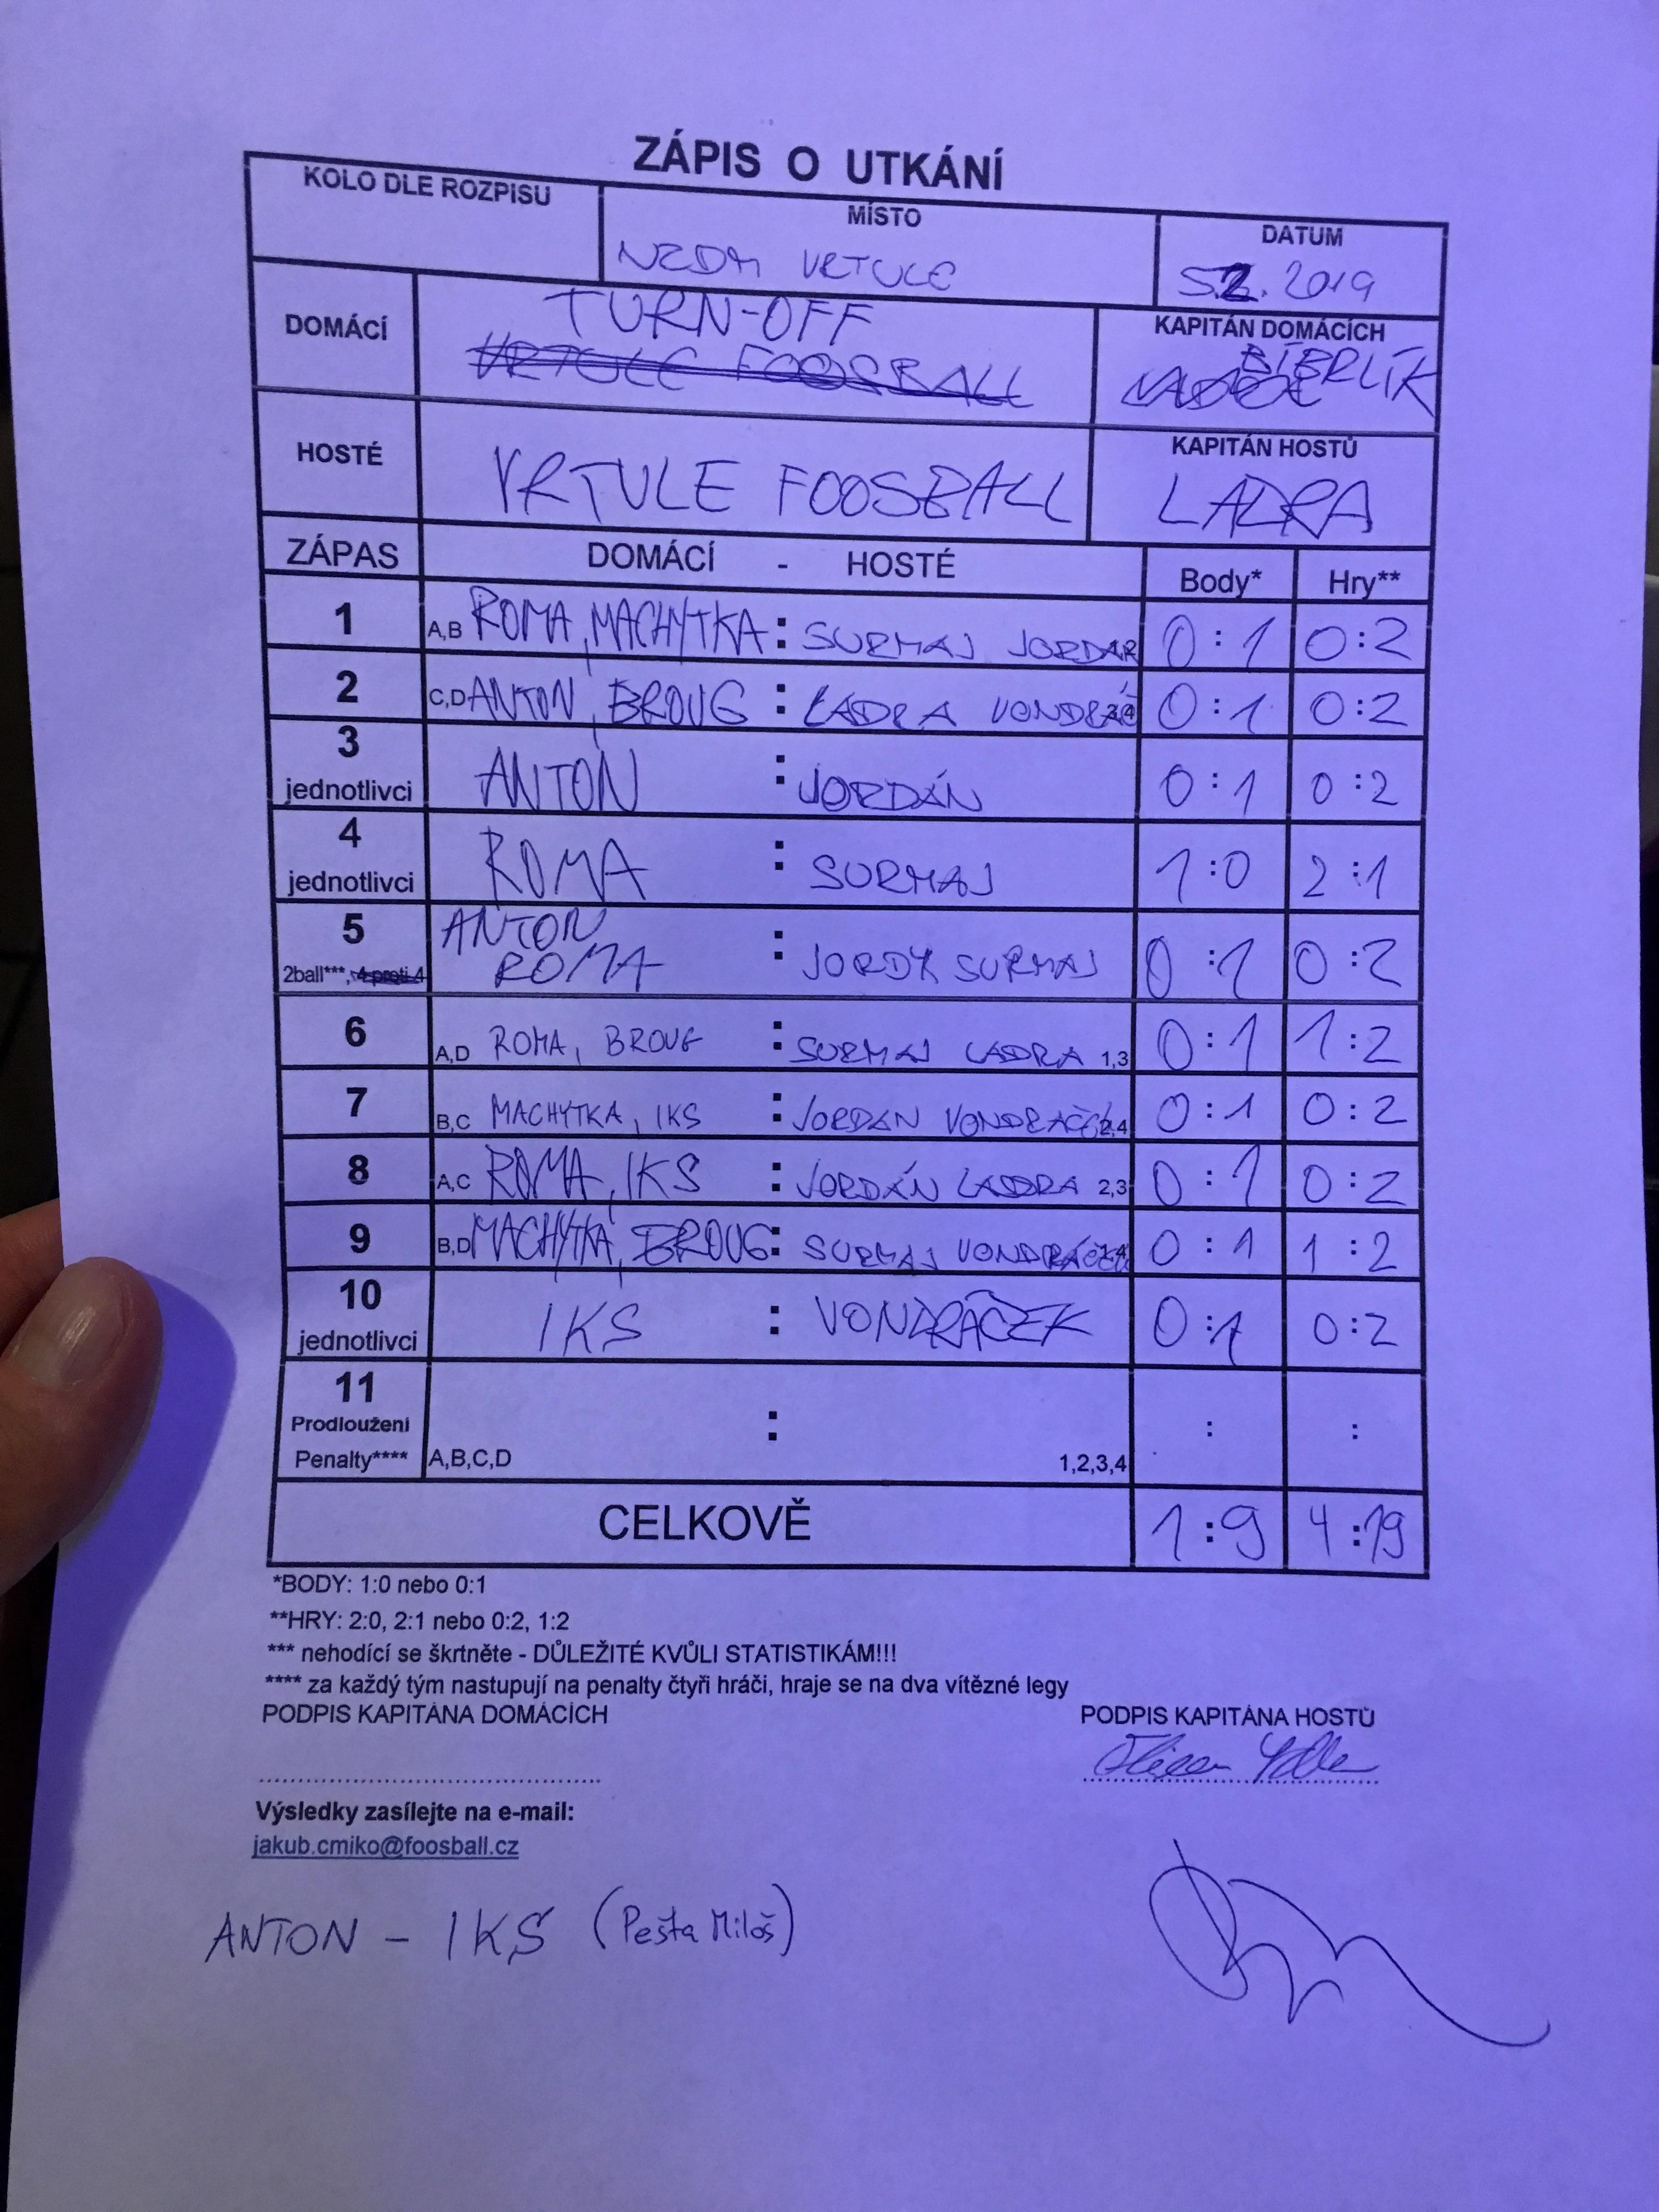 ZÁPIS O UTKÁNÍ
KOLO DLE ROZPISU
MÍSTO
NZDM VRTULE
DATUM
5.2. 2019
DOMÁCÍ
TURN-OFF
VRTULE FOOSBALL
KAPITÁN DOMÁCÍCH
BÍBRLÍK
HOSTÉ
VRTULE FOOSBALL
KAPITÁN HOSTŮ
LADRA
ZÁPAS DOMÁCÍ - HOSTÉ Body* Hry**
1 A,B ROMA, MACHYTKA : SURMAJ JORDÁN 0:1 0:2
2 C,D ANTON, BROUG : LADRA VONDRÁČ 3,4 0:1 0:2
3 jednotlivci ANTON : JORDÁN 0:1 0:2
4 jednotlivci ROMA : SURMAJ 1:0 2:1
5 2ball***, 4 proti 4 ANTON ROMA : JORDY SURMAJ 0:1 0:2
6 A,D ROMA, BROUG : SURMAJ LADRA 1,3 0:1 1:2
7 B,C MACHYTKA, IKS : JORDÁN VONDRÁČEK 2,4 0:1 0:2
8 A,C ROMA, IKS : JORDÁN LADRA 2,3 0:1 0:2
9 B,D MACHYTKA, BROUG : SURMAJ VONDRÁČEK 1,4 0:1 1:2
10 jednotlivci IKS : VONDRÁČEK 0:1 0:2
11 Prodloužení Penalty**** A,B,C,D : 1,2,3,4 : :
CELKOVĚ 1:9 4:19
*BODY: 1:0 nebo 0:1
**HRY: 2:0, 2:1 nebo 0:2, 1:2
*** nehodící se škrtněte - DŮLEŽITÉ KVŮLI STATISTIKÁM!!!
**** za každý tým nastupují na penalty čtyři hráči, hraje se na dva vítězné legy
PODPIS KAPITÁNA DOMÁCÍCH
PODPIS KAPITÁNA HOSTŮ
Výsledky zasílejte na e-mail:
jakub.cmiko@foosball.cz
ANTON - IKS (Pešta Miloš)